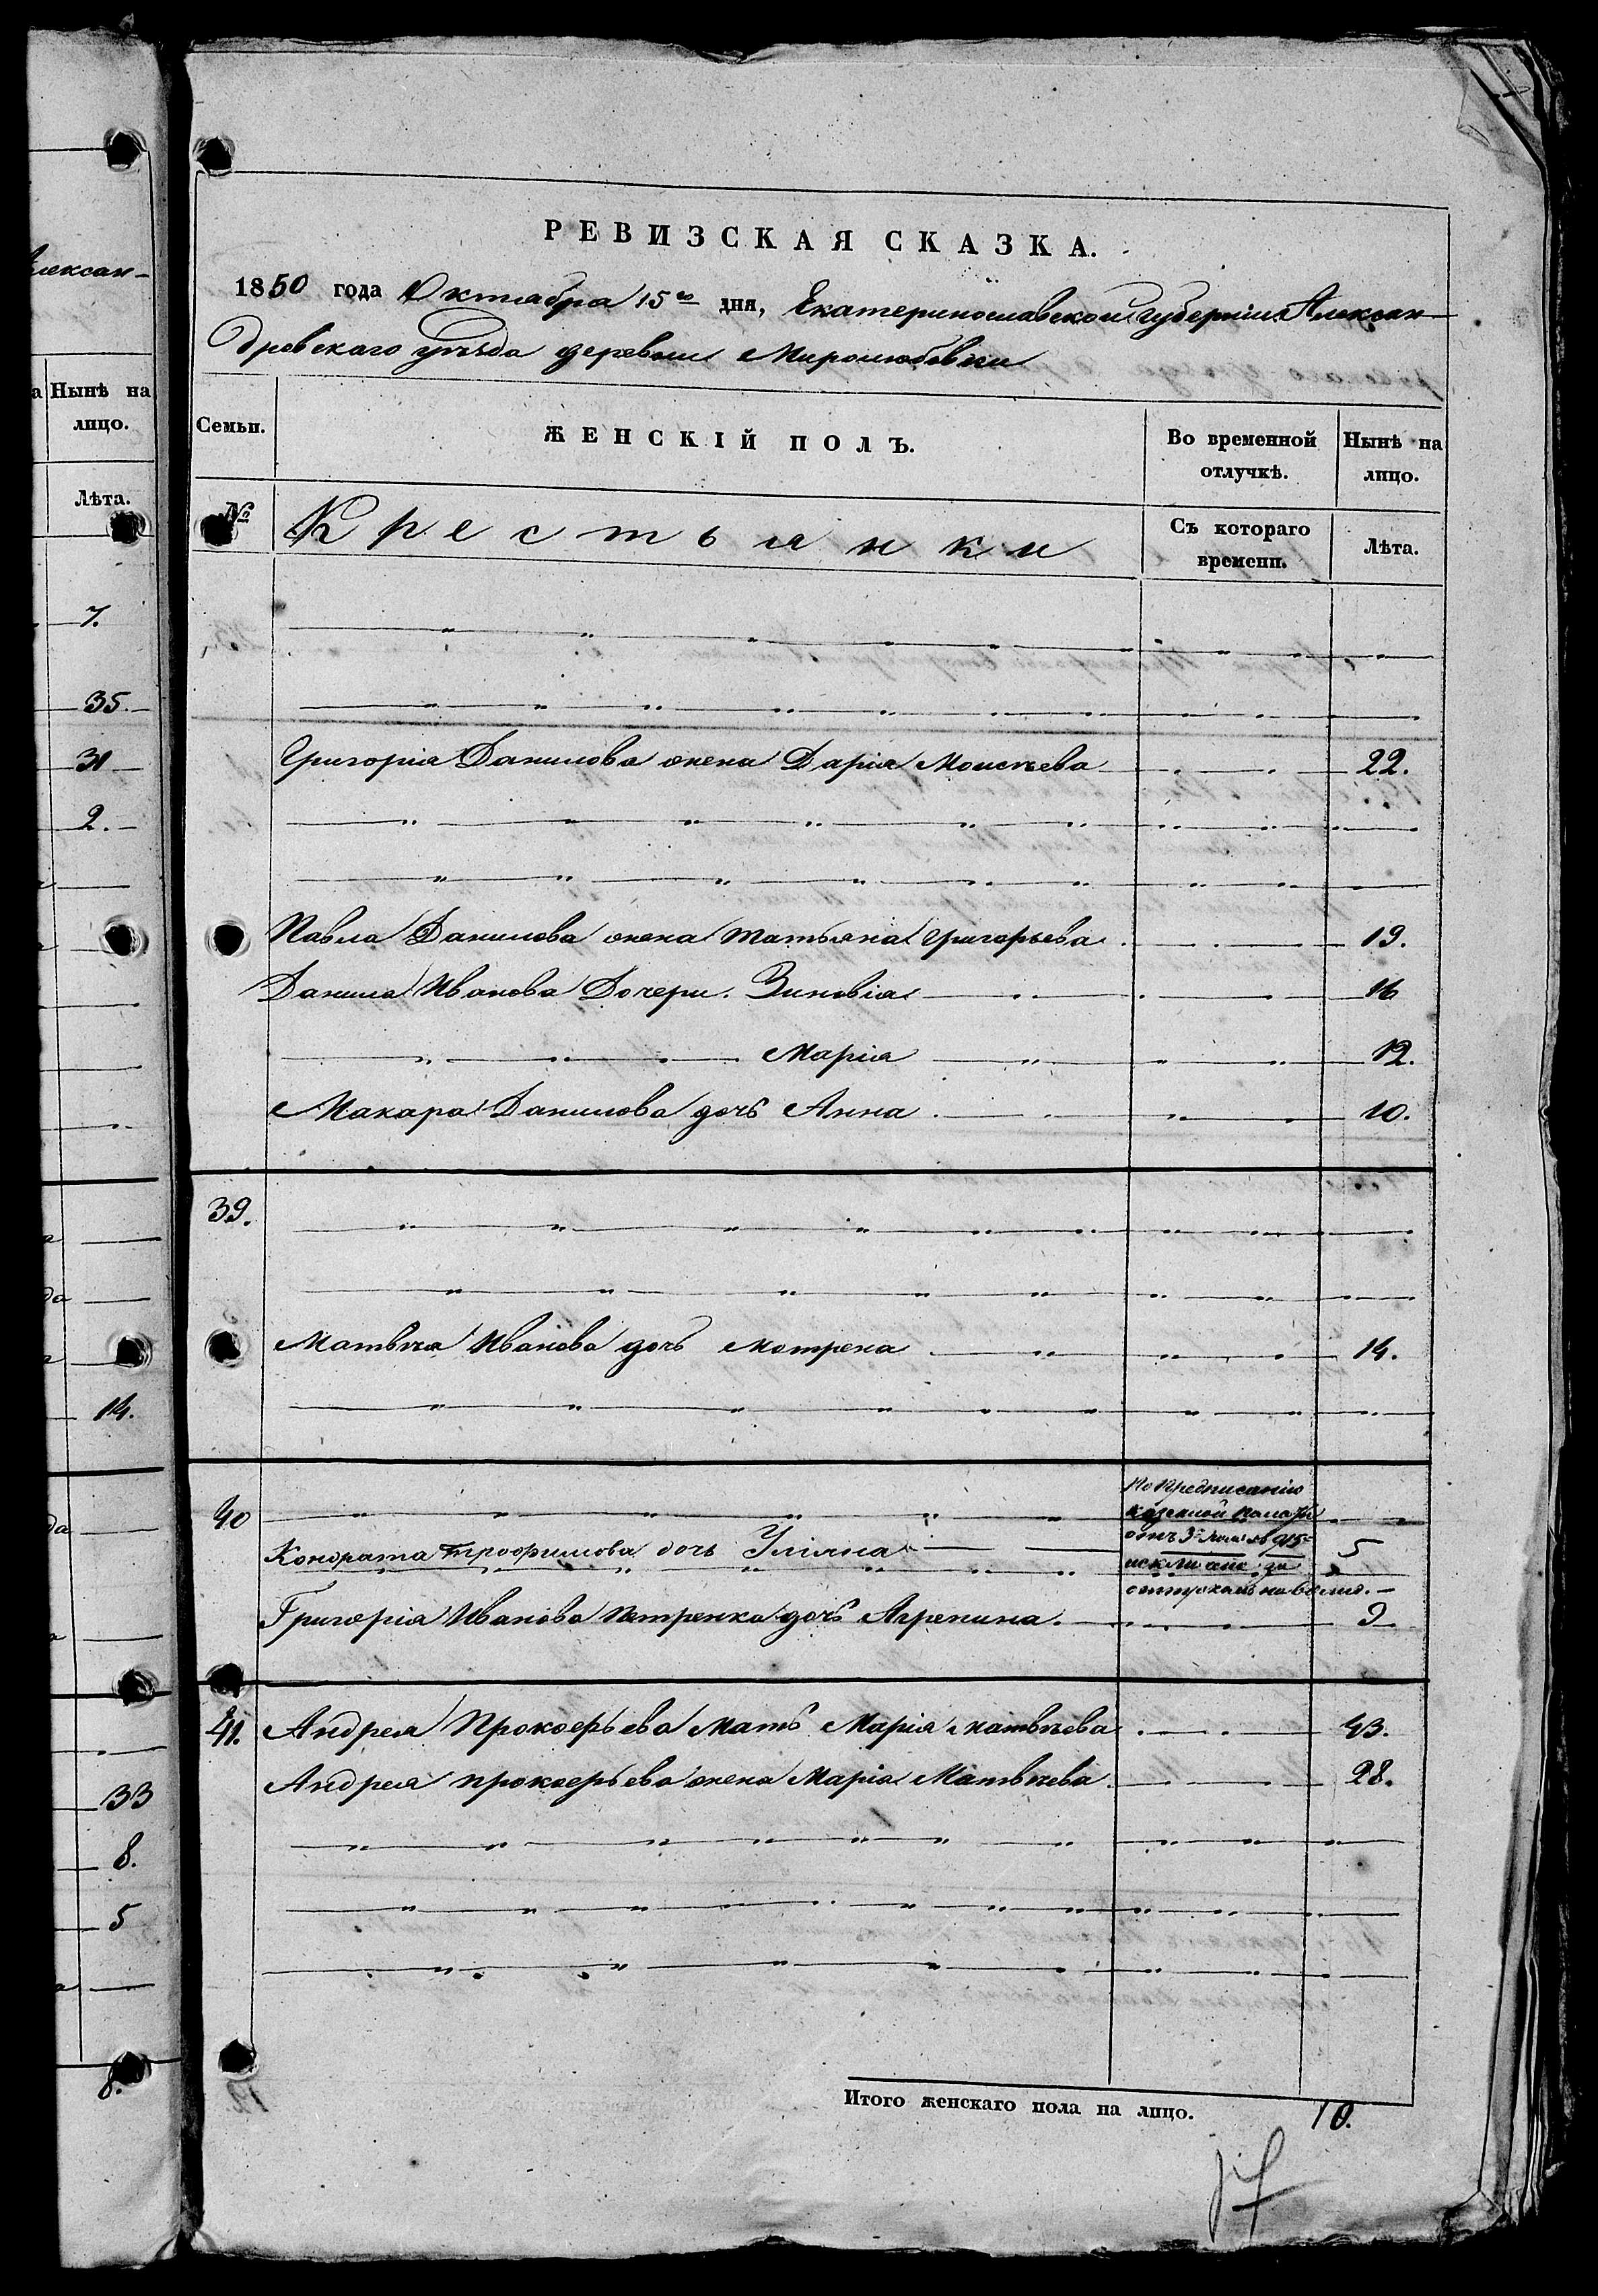 Алексан-
Нынѣ на
лицо.
Лѣта.
7.
35.
31
2.
14.
33
8.
5
8.
РЕВИЗСКАЯ СКАЗКА.
1850 года Октября 15го дня, Екатеринославской Губерніи Алексан-
дровскаго уѣзда деревни Миролюбовки
Семьи. ЖЕНСКІЙ ПОЛЪ. Во временной отлучкѣ. Нынѣ на лицо.
№ Крестьянки Съ котораго времени. Лѣта.
Григорія Данилова жена Дарія Моисѣева 22.
Павла Данилова жена Татьяна Григорьева 19.
Данила Иванова Дочери. Зиновія 16
Марія 12.
Макара Данилова дочь Анна 10.
39.
Матвѣя Иванова дочь Мотрена 14.
40 По Предписанію
казенной палаты
Кондрата Трофимова дочь Уліяна отъ 3 5
за
отпускомъ на волю.
Григорія Иванова Петренка дочь Агрепина. 9
41. Андрея Прокофьева Мать Марія Матвѣева 43.
Андрея прокофьева жена Марія Матвѣева 28.
Итого женскаго пола на лицо. 10.